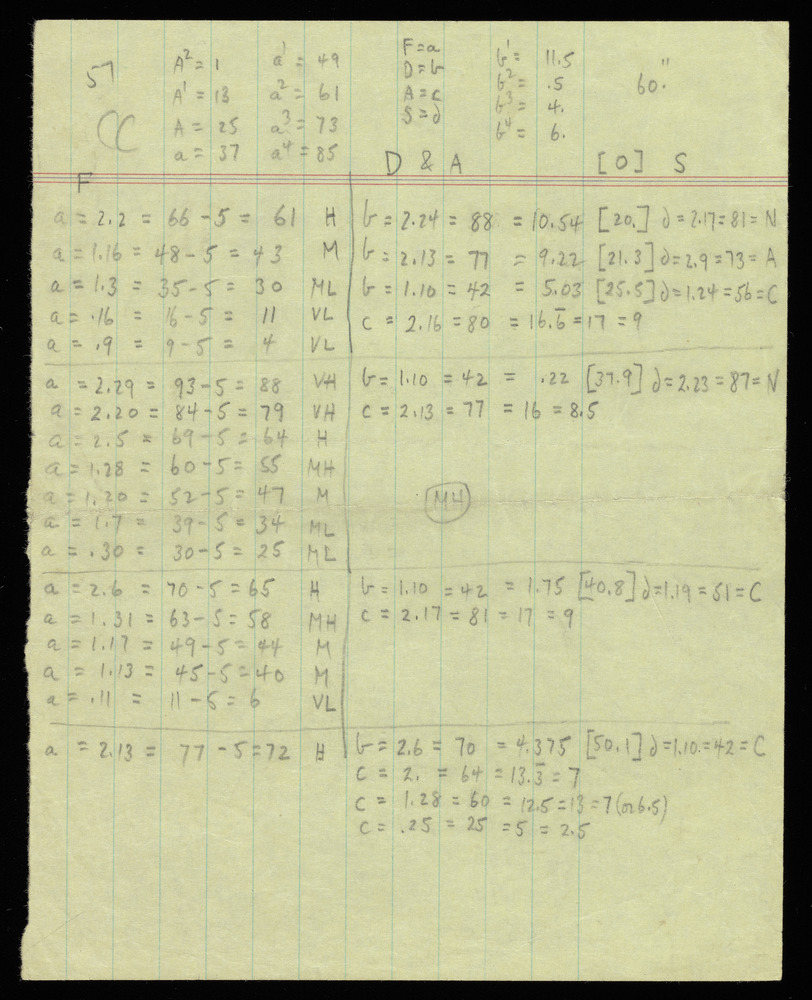 57 A² = 1 a¹ = 49 F = a b¹ = 11.5 60."
A¹ = 13 a² = 61 D = b b² = .5
CC A = 25 a³ = 73 A = c b³ = 4.
a = 37 a⁴ = 85 S = d b⁴ = 6.
F D & A [O] S
a = 2.2 = 66 - 5 = 61 H b = 2.24 = 88 = 10.54 [20.] d = 2.17 = 81 = N
a = 1.16 = 48 - 5 = 43 M b = 2.13 = 77 = 9.22 [21.3] d = 2.9 = 73 = A
a = 1.3 = 35 - 5 = 30 ML b = 1.10 = 42 = 5.03 [25.5] d = 1.24 = 56 = C
a = .16 = 16 - 5 = 11 VL c = 2.16 = 80 = 16.6̅ = 17 = 9
a = .9 = 9 - 5 = 4 VL
a = 2.29 = 93 - 5 = 88 VH b = 1.10 = 42 = .22 [37.9] d = 2.23 = 87 = N
a = 2.20 = 84 - 5 = 79 VH c = 2.13 = 77 = 16 = 8.5
a = 2.5 = 69 - 5 = 64 H
a = 1.28 = 60 - 5 = 55 MH
a = 1.20 = 52 - 5 = 47 M MH
a = 1.7 = 39 - 5 = 34 ML
a = .30 = 30 - 5 = 25 ML
a = 2.6 = 70 - 5 = 65 H b = 1.10 = 42 = 1.75 [40.8] d = 1.19 = 51 = C
a = 1.31 = 63 - 5 = 58 MH c = 2.17 = 81 = 17 = 9
a = 1.17 = 49 - 5 = 44 M
a = 1.13 = 45 - 5 = 40 M
a = .11 = 11 - 5 = 6 VL
a = 2.13 = 77 - 5 = 72 H b = 2.6 = 70 = 4.375 [50.1] d = 1.10. = 42 = C
c = 2. = 64 = 13.3̅ = 7
c = 1.28 = 60 = 12.5 = 13 = 7 (or 6.5)
c = .25 = 25 = 5 = 2.5